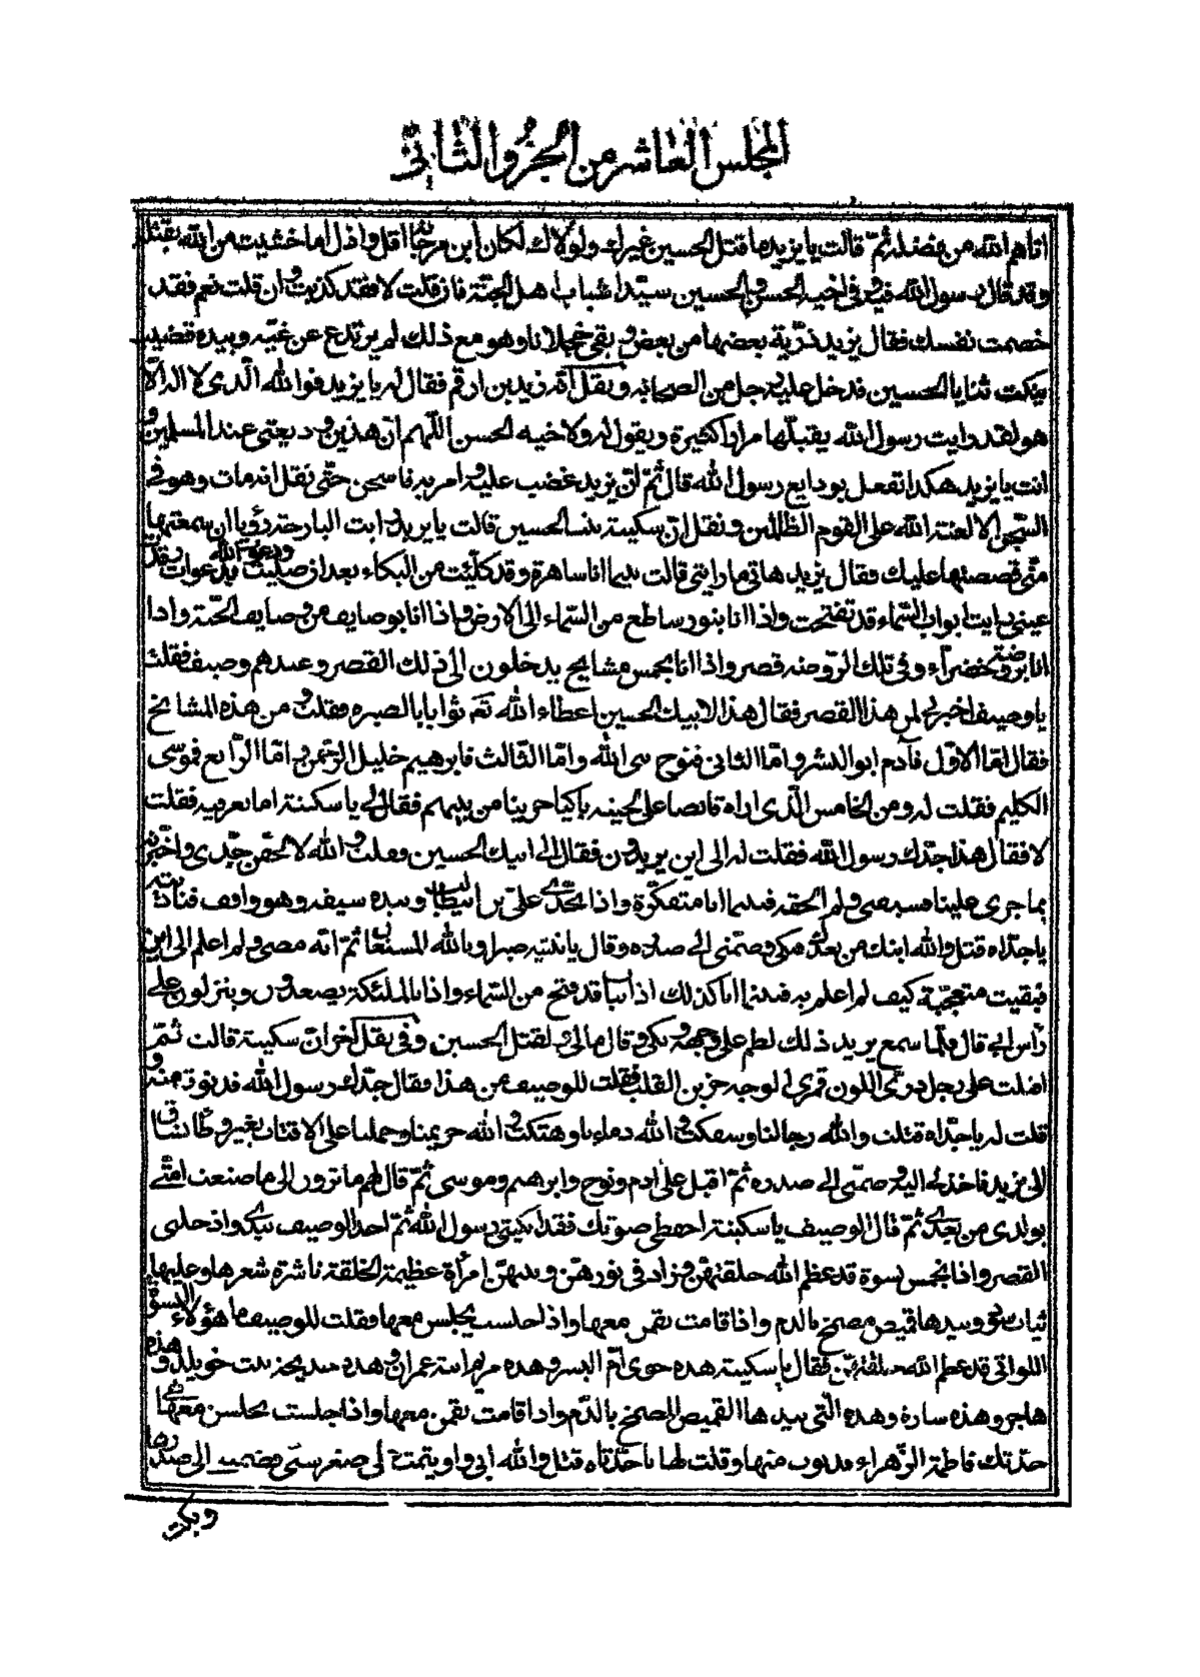 المجلس العاشر من الجزو الثانى
اتاهم الله من فضله ثمّ قالت يا يزيد ما قتل الحسين غيرك ولولاك لكان ابن مرجانة اقل واذل اما خشيت من الله بقتله
وقد قال رسول الله فيه وفى اخيه الحسن والحسين سيّدا شباب اهل الجنّة فان قلت لا فقد كذبت وان قلت نعم فقد
خصمت نفسك فقال يزيد ذرّية بعضها من بعض وبقى خجلانا وهو مع ذلك لم يرتدع عن غيّه وبيده قضيب
ينكت ثنايا الحسين فدخل عليه رجل من الصحابه ونقل انّه زيد بن ارقم فقال له يا يزيد فوالله الّذى لا اله الّا
هو لقد رايت رسول الله يقبّلها مرارا كثيرة ويقول له ولاخيه الحسن اللّهم انّ هذين وديعتى عند المسلمين و
انت يا يزيد هكذا تفعل بودايع رسول الله قال ثمّ انّ يزيد غضب عليه وامر به فاسجن حتّى نقل انه مات وهو فى
السّجن الا لعنة الله على القوم الظالمين ونقل انّ سكينة بنت الحسين قالت يا يزيد رايت البارحة رؤيا ان سمعتها
منّى قصصتها عليك فقال يزيد هاتى ما رايتى قالت بينما انا ساهرة وقد كلّيت من البكاء بعد ان صليت ودعوت الله بدعوات رقدت
عينى رايت ابواب السّماء قد تفتّحت واذا انا بنور ساطع من السّماء الى الارض واذا انا بوصايف من وصايف الجنّة واذا
انا بروضة خضراء وفى تلك الرّوضه قصر واذا انا بخمس مشايخ يدخلون الى ذلك القصر وعندهم وصيف فقلت
يا وصيف اخبرنى لمن هذا القصر فقال هذا لابيك الحسين اعطاه الله تعالى ثوابا بالصبره فقلت ومن هذه المشايخ
فقال امّا الاوّل فآدم ابو البشر وامّا الثانى فنوح نبى الله وامّا الثّالث فابرهيم خليل الرّحمن وامّا الرّابع فموسى
الكليم فقلت له ومن الخامس الّذى اراه قابضا على لحيته باكيا حزينا من بينهم فقال لى يا سكينة اما تعرفيه فقلت
لا فقال هذا جدّك رسول الله فقلت له الى اين يريدون فقال الى ابيك الحسين فقلت والله لالحقنّ جدّى واخبرنّه
بما جرى علينا فسبقنى ولم الحقه فبينما انا متفكّرة واذا بجدّى علىّ بن ابيطالب وبيده سيفه وهو واقف فناديته
يا جدّاه قتل والله ابنك من بعدك فبكى وضمّنى الى صدره وقال يا بنيّه صبرا وبالله المستعان ثمّ انّه مضى ولم اعلم الى اين
فبقيت متعجّبة كيف لم اعلم به فبينما انا كذلك اذا بباب قد فتح من السّماء واذا بالملئكة يصعدون وينزلون على
رأس ابى قال فلمّا سمع يزيد ذلك لطم على وجهه وبكى وقال مالى ولقتل الحسين وفى نقل آخر انّ سكينة قالت ثمّ
اقبلت على رجل درّىّ اللون قمرىّ الوجه حزين القلب فقلت للوصيف من هذا فقال جدّك رسول الله فدنوت منه و
قلت له يا جدّاه قتلت والله رجالنا وسفكت والله دماءنا وهتكت والله حريمنا وحملنا على الاقتاب بغير وطاء نساق
الى يزيد فاخذنى اليه وضمّنى الى صدره ثمّ اقبل على ادم ونوح وابرهيم وموسى ثمّ قال لهم ما ترون الى ما صنعت امّتى
بولدى من بعدى ثمّ قال الوصيف يا سكينة اخفضى صوتك فقد ابكيتى رسول الله ثمّ اخذ الوصيف بيدى وادخلنى
القصر واذا بخمس نسوة قد عظم الله خلقتهنّ وزاد فى نورهنّ وبينهنّ امرأة عظيمة الخلقة ناشرة شعرها وعليها
ثياب سود وبيدها قميص مضمّخ بالدم واذا قامت يقمن معها واذا جلست يجلسن معها فقلت للوصيف ما هؤلاء النسوة
اللواتى قد عظم الله خلقتهنّ فقال يا سكينة هذه حوى امّ البشر وهذه مريم ابنة عمران وهذه خديجة بنت خويلد وهذه
هاجر وهذه سارة وهذه الّتى بيدها القميص المضمّخ بالدّم واذا قامت يقمن معها واذا جلست يجلسن معها هى
جدّتك فاطمة الزّهراء فدنوت منها وقلت لها يا جدّتاه قتل والله ابى واويتمت على صغر سنّى فضمتنى الى صدرها
وبكت